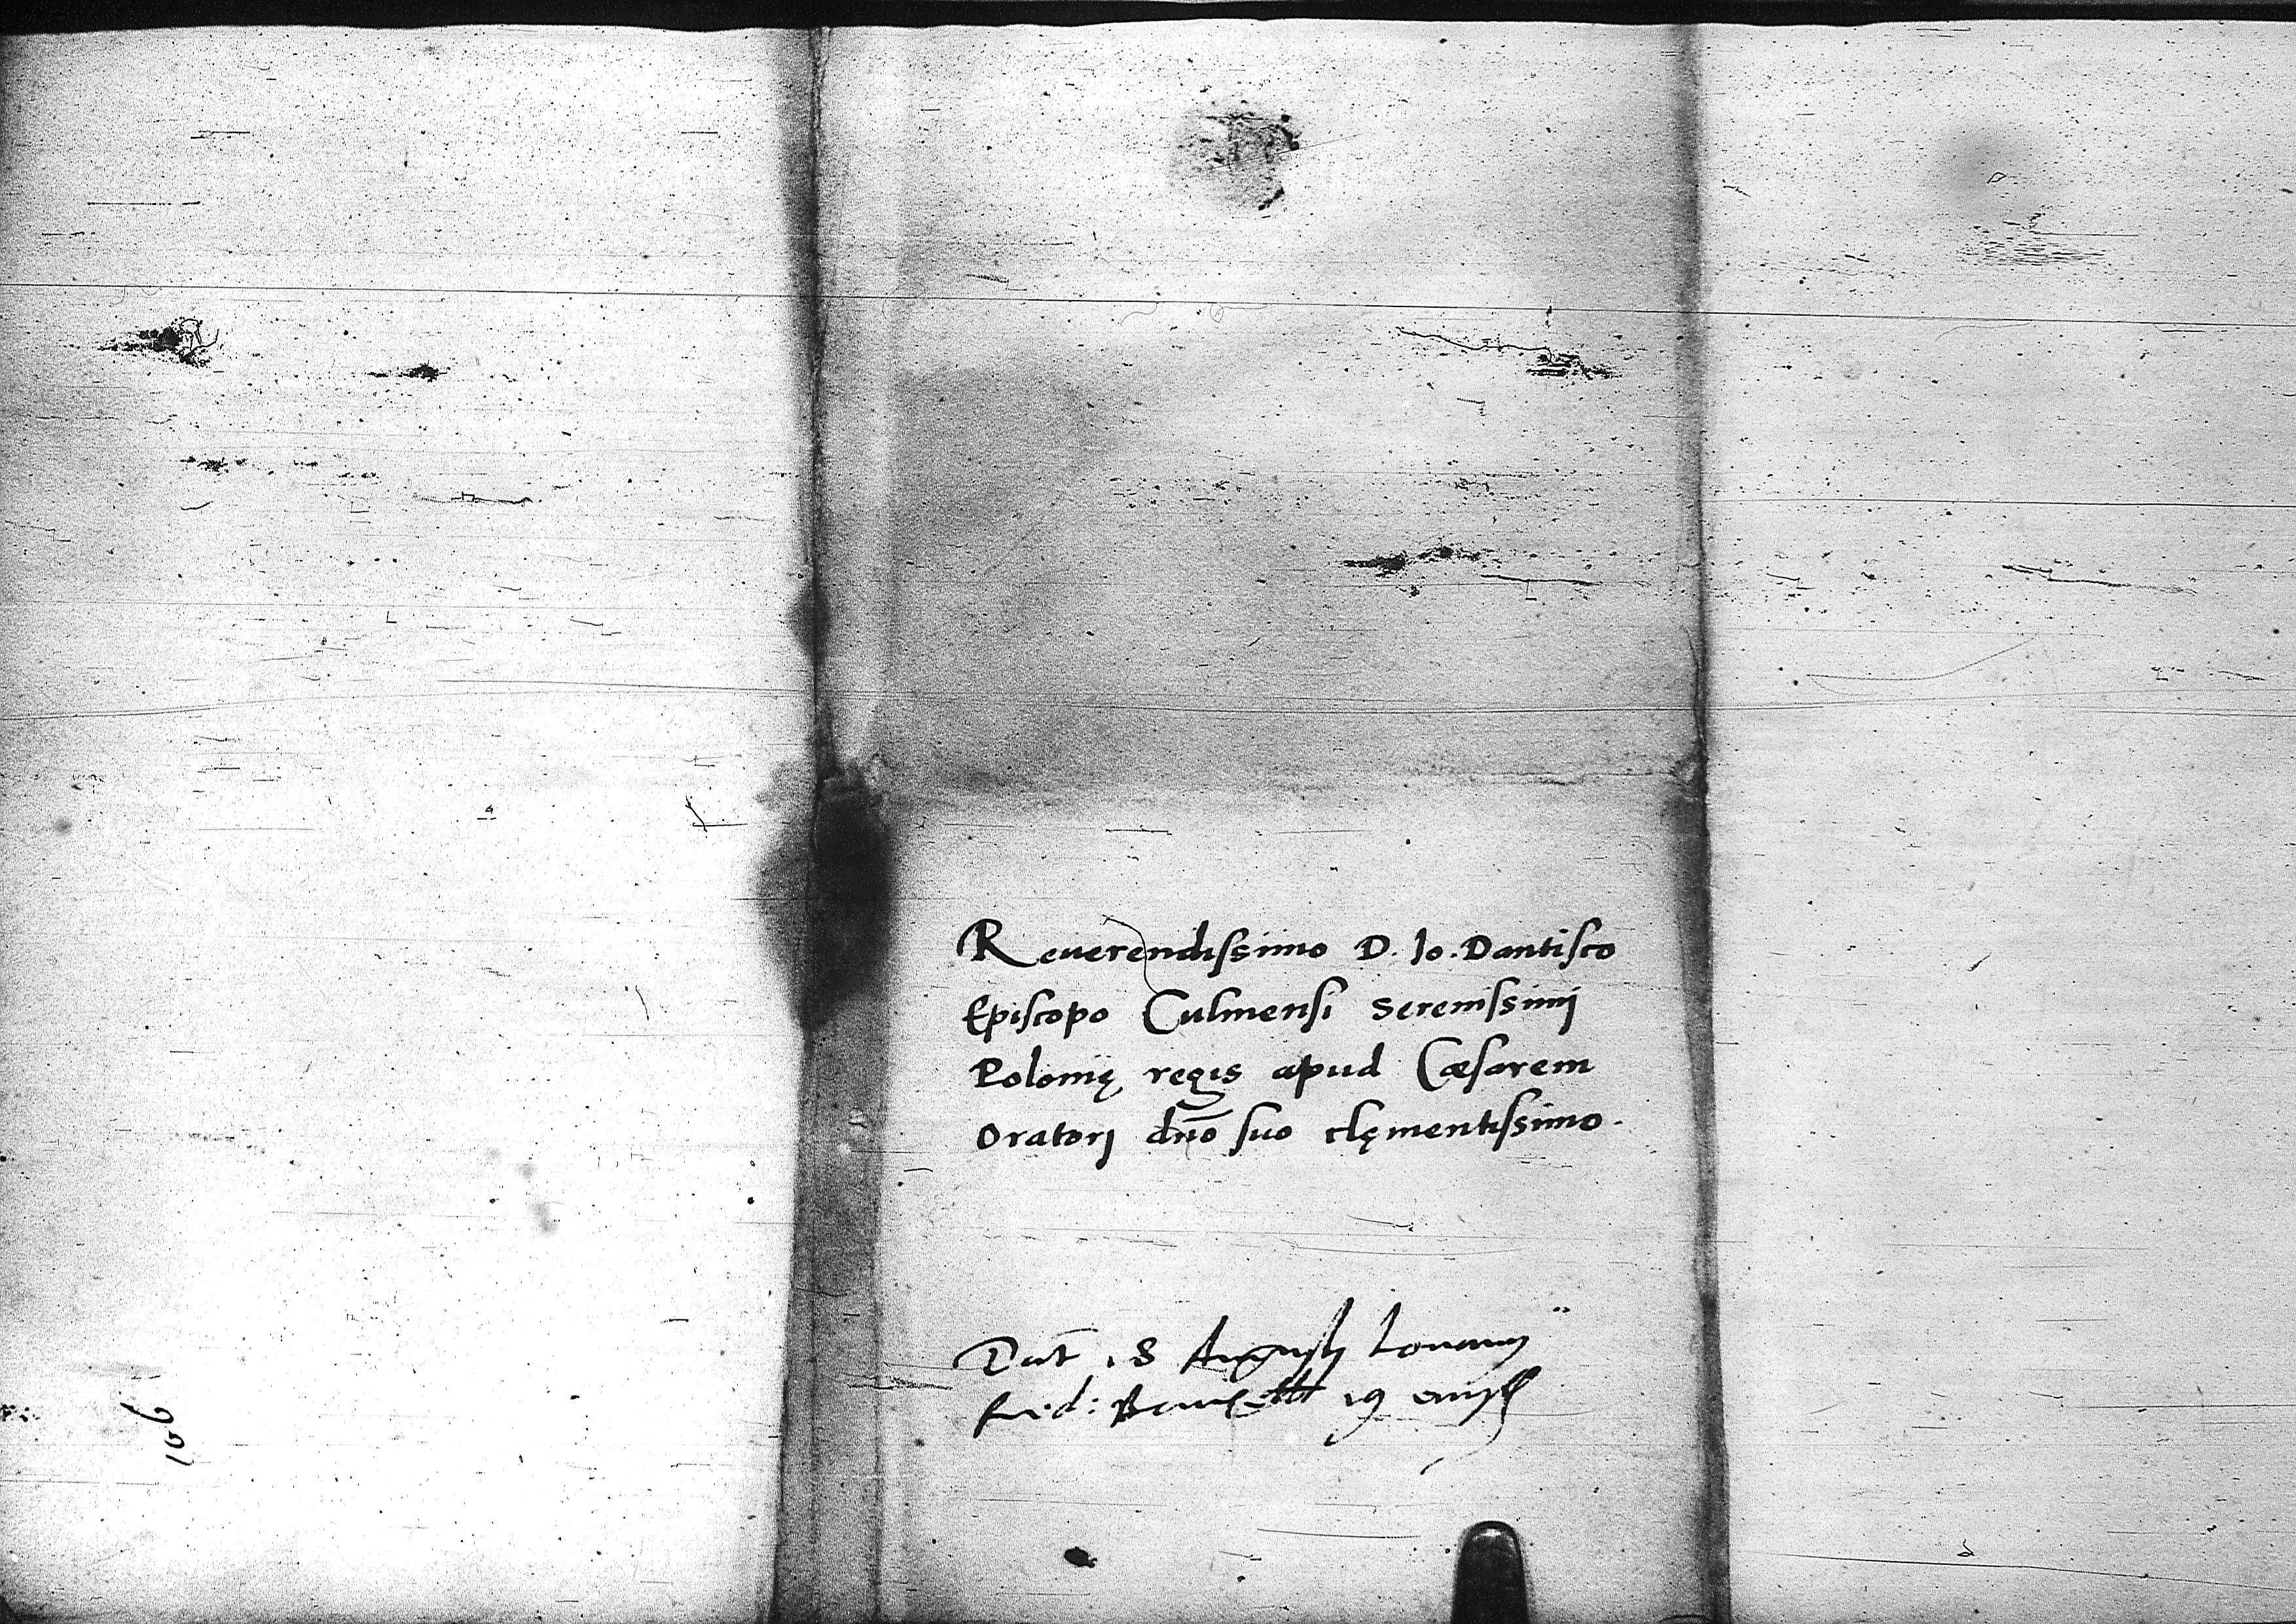 Reuerendissimo D. Io. Dantisco
Episcopo Culmensi Serenissimi
Polonię regis apud Cæsarem
Oratorj dno suo clęmentissimo.
Dat 18 Augusti Louanij
19
106